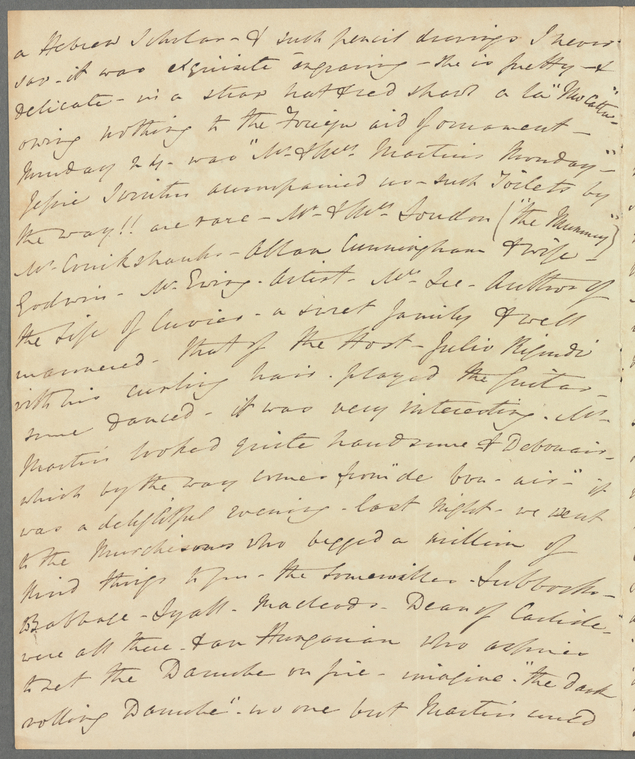 a Hebrew Scholar - & such pencil drawings I never
saw - it was exquisite engraving - she is pretty - &
delicate - in a straw hat & red shawl a la
owing nothing to the Foreign aid of ornament -
Monday 24. was "Mr. & Mrs. Martin's Monday" -
Jessie accompanied us - such Toilets by
the way!! are rare - Mr. & Mrs. Loudon ("the Mummy")
Mr. Cruikshank - Allan Cunningham & wife -
Godwin - Mr. Ewing - Artist - Mrs. Lee - Author of
the life of Cuvier - a sweet family & well
mannered - that of the Host - Julio Regondi
with his curling hair - played the Guitar -
some danced - it was very interesting - Mr.
Martin looked quite handsome & Debonair -
which by the way comes from "de bon - air" - it
was a delightful evening - last night - we went
to the Murchisons who begged a million of
kind things to you - the Somervilles - Lubbocks -
Babbage - Lyall - Macleods - Dean of Carlisle -
were all there - & an Hungarian who aspires
to set the Danube on fire - imagine - "the dark
rolling Danube" - no one but Martin could